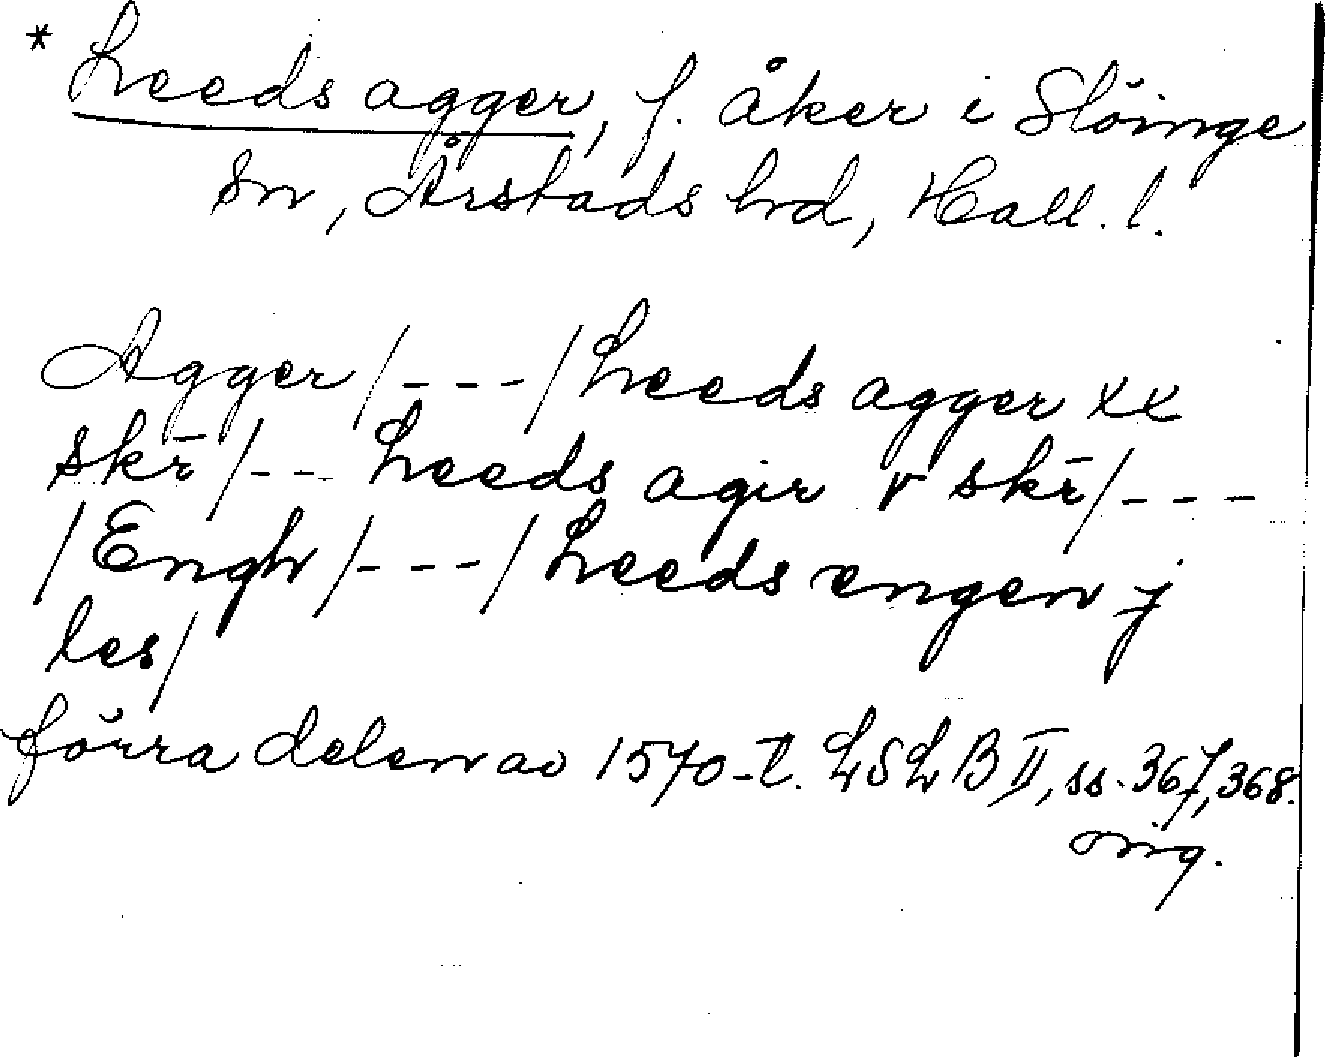 * Leeds agger, f. åker i Slöinge
sn, Årstads hrd, Hall. l.
Agger /---/ Leeds agger xx
skr̄ /--- Leeds agir v skr̄ /---
/ Engh /---/ Leeds engen j
les/
förra delen av 1570-t. LSLB II, ss. 367, 368.
orig.